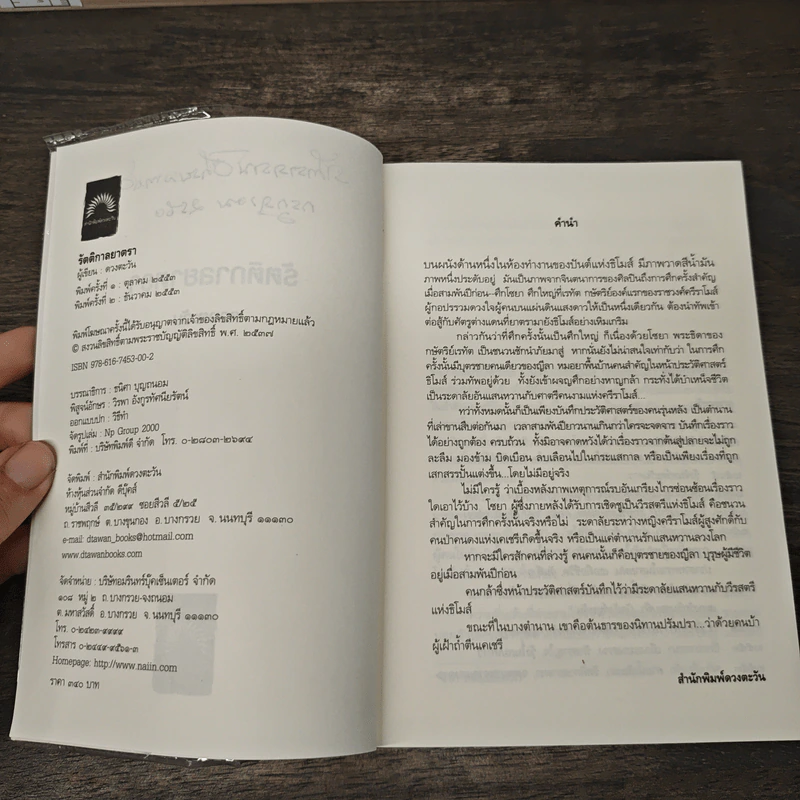 รัตติกาลยาตรา
ผู้เขียน : ดวงตะวัน
พิมพ์ครั้งที่ ๑ : ตุลาคม ๒๕๕๓
พิมพ์ครั้งที่ ๒ : ธันวาคม ๒๕๕๓
พิมพ์โฆษณาครั้งนี้ได้รับอนุญาตจากเจ้าของลิขสิทธิ์ตามกฎหมายแล้ว
© สงวนลิขสิทธิ์ตามพระราชบัญญัติลิขสิทธิ์ พ.ศ. ๒๕๓๗
ISBN 978-616-7453-00-2
บรรณาธิการ : ชนิศา บุญถนอม
พิสูจน์อักษร : วิรพา อังกูรทัศนียรัตน์
ออกแบบปก : วิธีทำ
จัดรูปเล่ม : Np Group 2000
พิมพ์ที่ : บริษัทพิมพ์ดี จำกัด โทร. ๐-๒๘๐๓-๒๖๙๔
จัดพิมพ์ : สำนักพิมพ์ดวงตะวัน
ห้างหุ้นส่วนจำกัด ดีบุ๊คส์
หมู่บ้านสิวลี ๓๕/๒๙๙ ซอยสิวลี ๕/๒๕
ถ.ราชพฤกษ์ ต.บางขุนกอง อ.บางกรวย จ.นนทบุรี ๑๑๑๓๐
e-mail: dtawan_books@hotmail.com
www.dtawanbooks.com
จัดจำหน่าย : บริษัทอมรินทร์บุ๊คเซ็นเตอร์ จำกัด
๑๐๘ หมู่ ๒ ถ.บางกรวย-จงถนอม
ต.มหาสวัสดิ์ อ.บางกรวย จ.นนทบุรี ๑๑๑๓๐
โทร. ๐-๒๔๒๓-๙๙๙๙
โทรสาร ๐-๒๔๔๙-๙๕๖๑-๓
Homepage: http://www.naiin.com
ราคา ๓๔๐ บาท
คำนำ
บนผนังด้านหนึ่งในห้องทำงานของปันต์แห่งชิโมส์ มีภาพวาดสีน้ำมัน
ภาพหนึ่งประดับอยู่ มันเป็นภาพจากจินตนาการของศิลปินถึงการศึกครั้งสำคัญ
เมื่อสามพันปีก่อน–ศึกโซยา ศึกใหญ่ที่เรทัต กษัตริย์องค์แรกของราชวงค์ศรีราโมส์
ผู้กอปรรวมดวงใจผู้คนบนแผ่นดินแสงดาวให้เป็นหนึ่งเดียวกัน ต้องนำทัพเข้า
ต่อสู้กับศัตรูต่างแดนที่ยาตรามายังชิโมส์อย่างเหิมเกริม
กล่าวกันว่าที่ศึกครั้งนั้นเป็นศึกใหญ่ ก็เนื่องด้วยโซยา พระธิดาของ
กษัตริย์เรทัต เป็นชนวนชักนำภัยมาสู่ หากนั่นยังไม่น่าสนใจเท่ากับว่า ในการศึก
ครั้งนั้นมีบุตรชายคนเดียวของญีลา หมอยาพื้นบ้านคนสำคัญในหน้าประวัติศาสตร์
ชิโมส์ ร่วมทัพอยู่ด้วย ทั้งยังเข้าผจญศึกอย่างหาญกล้า กระทั่งได้บำเหน็จชีวิต
เป็นระดาลัยอันแสนหวานกับศาตรีคนงามแห่งศรีราโมส์...
ทว่าทั้งหมดนั้นก็เป็นเพียงบันทึกประวัติศาสตร์ของคนรุ่นหลัง เป็นตำนาน
ที่เล่าขานสืบต่อกันมา เวลาสามพันปียาวนานเกินกว่าใครจะจดจาร บันทึกเรื่องราว
ได้อย่างถูกต้อง ครบถ้วน ทั้งมิอาจคาดหวังได้ว่าเรื่องราวจากต้นสู่ปลายจะไม่ถูก
ละลืม มองข้าม บิดเบือน ลบเลือนไปในกระแสกาล หรือเป็นเพียงเรื่องที่ถูก
เสกสรรปั้นแต่งขึ้น...โดยไม่มีอยู่จริง
ไม่มีใครรู้ ว่าเบื้องหลังภาพเหตุการณ์รบอันเกรียงไกรซ่อนซ้อนเรื่องราว
ใดเอาไว้บ้าง โซยา ผู้ซึ่งภายหลังได้รับการเชิดชูเป็นวีรสตรีแห่งชิโมส์ คือชนวน
สำคัญในการศึกครั้งนั้นจริงหรือไม่ ระดาลัยระหว่างหญิงศรีราโมส์ผู้สูงศักดิ์กับ
คนป่าคนดงแห่งเคเชรีเกิดขึ้นจริง หรือเป็นแค่ตำนานรักแสนหวานลวงโลก
หากจะมีใครสักคนที่ล่วงรู้ คนคนนั้นก็คือบุตรชายของญีลา บุรุษผู้มีชีวิต
อยู่เมื่อสามพันปีก่อน
คนกล้าซึ่งหน้าประวัติศาสตร์บันทึกไว้ว่ามีระดาลัยแสนหวานกับวีรสตรี
แห่งชิโมส์
ขณะที่ในบางตำนาน เขาคือต้นธารของนิทานปรัมปรา...ว่าด้วยคนบ้า
ผู้เฝ้าถ้ำตีนเคเชรี
สำนักพิมพ์ดวงตะวัน